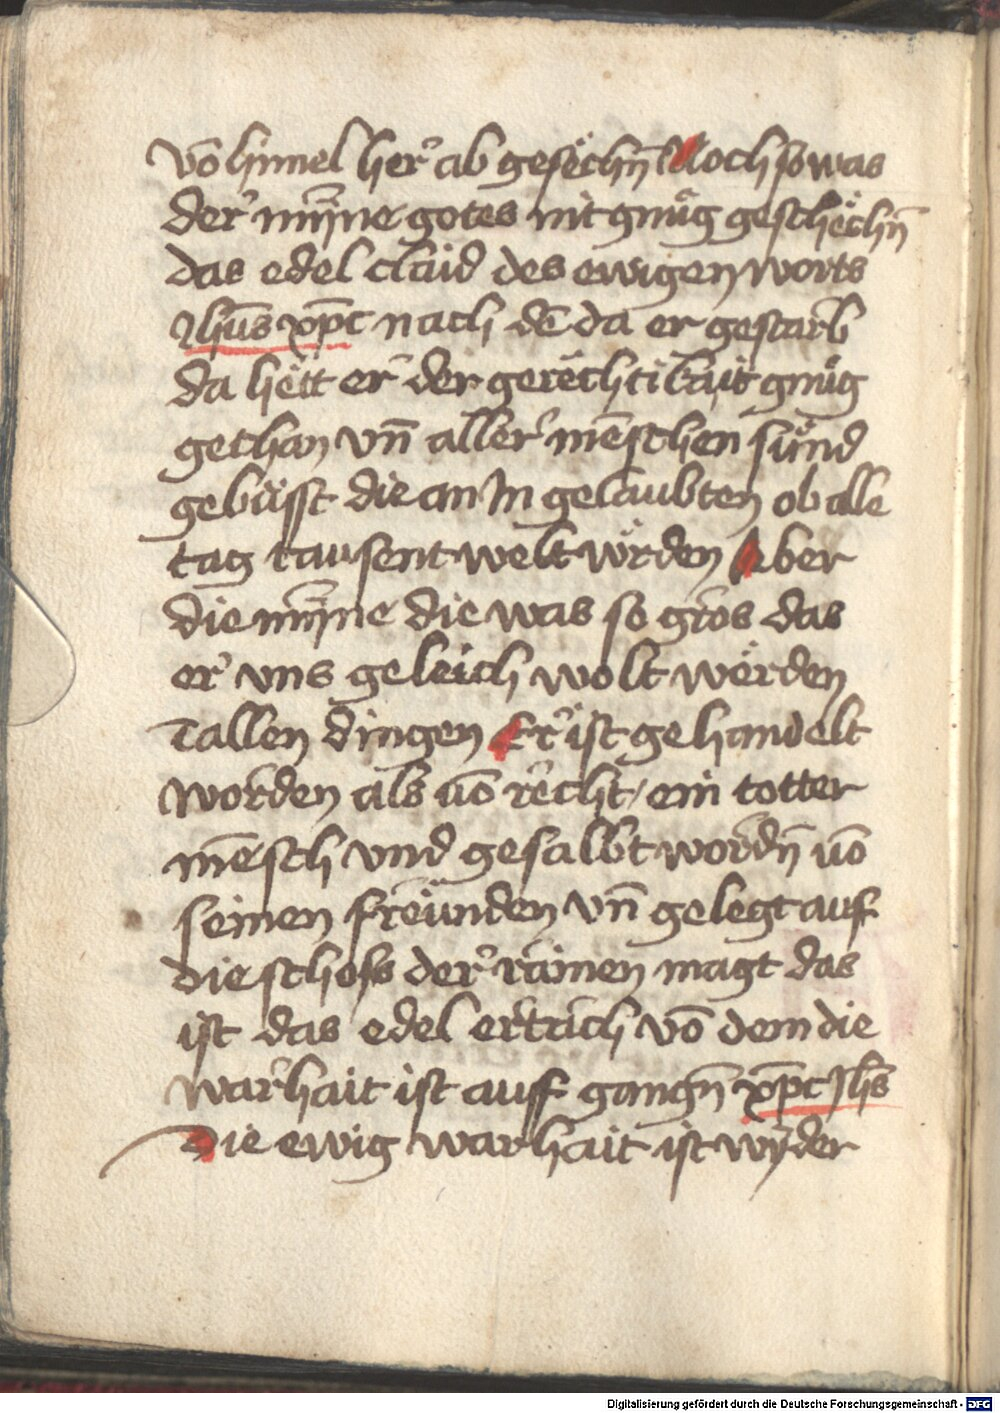 vō himel her ab gesëchn̄ Noch so was
der mȳne gotes nit gnůg geschëchn̄
das edel claid des ewigen worts
Jhūs xp̄c nach dē da er gestarb
da hëtt er der gerëchtikait gnůg
gethan vn̄ aller mēschen sünd
gebüsst die an Jn gelaubten ob alle
tag tausent welt wörden Aber
die mȳne die was so gros das
er vns geleich wolt wërden
Jallen dingen Er ist gehandelt
worden als vō rëcht / ein totter
mēsch vnd gesalbt wordn̄ vō
seinen freünden vn̄ gelegt auf
die schoss der rainen magt das
ist das edel ertrich vō dem die
warhait ist auff gangn̄ xp̄c Jhs̄
Die ewig warhait ist wÿder
Digitalisierung gefördert durch die Deutsche Forschungsgemeinschaft - DFG